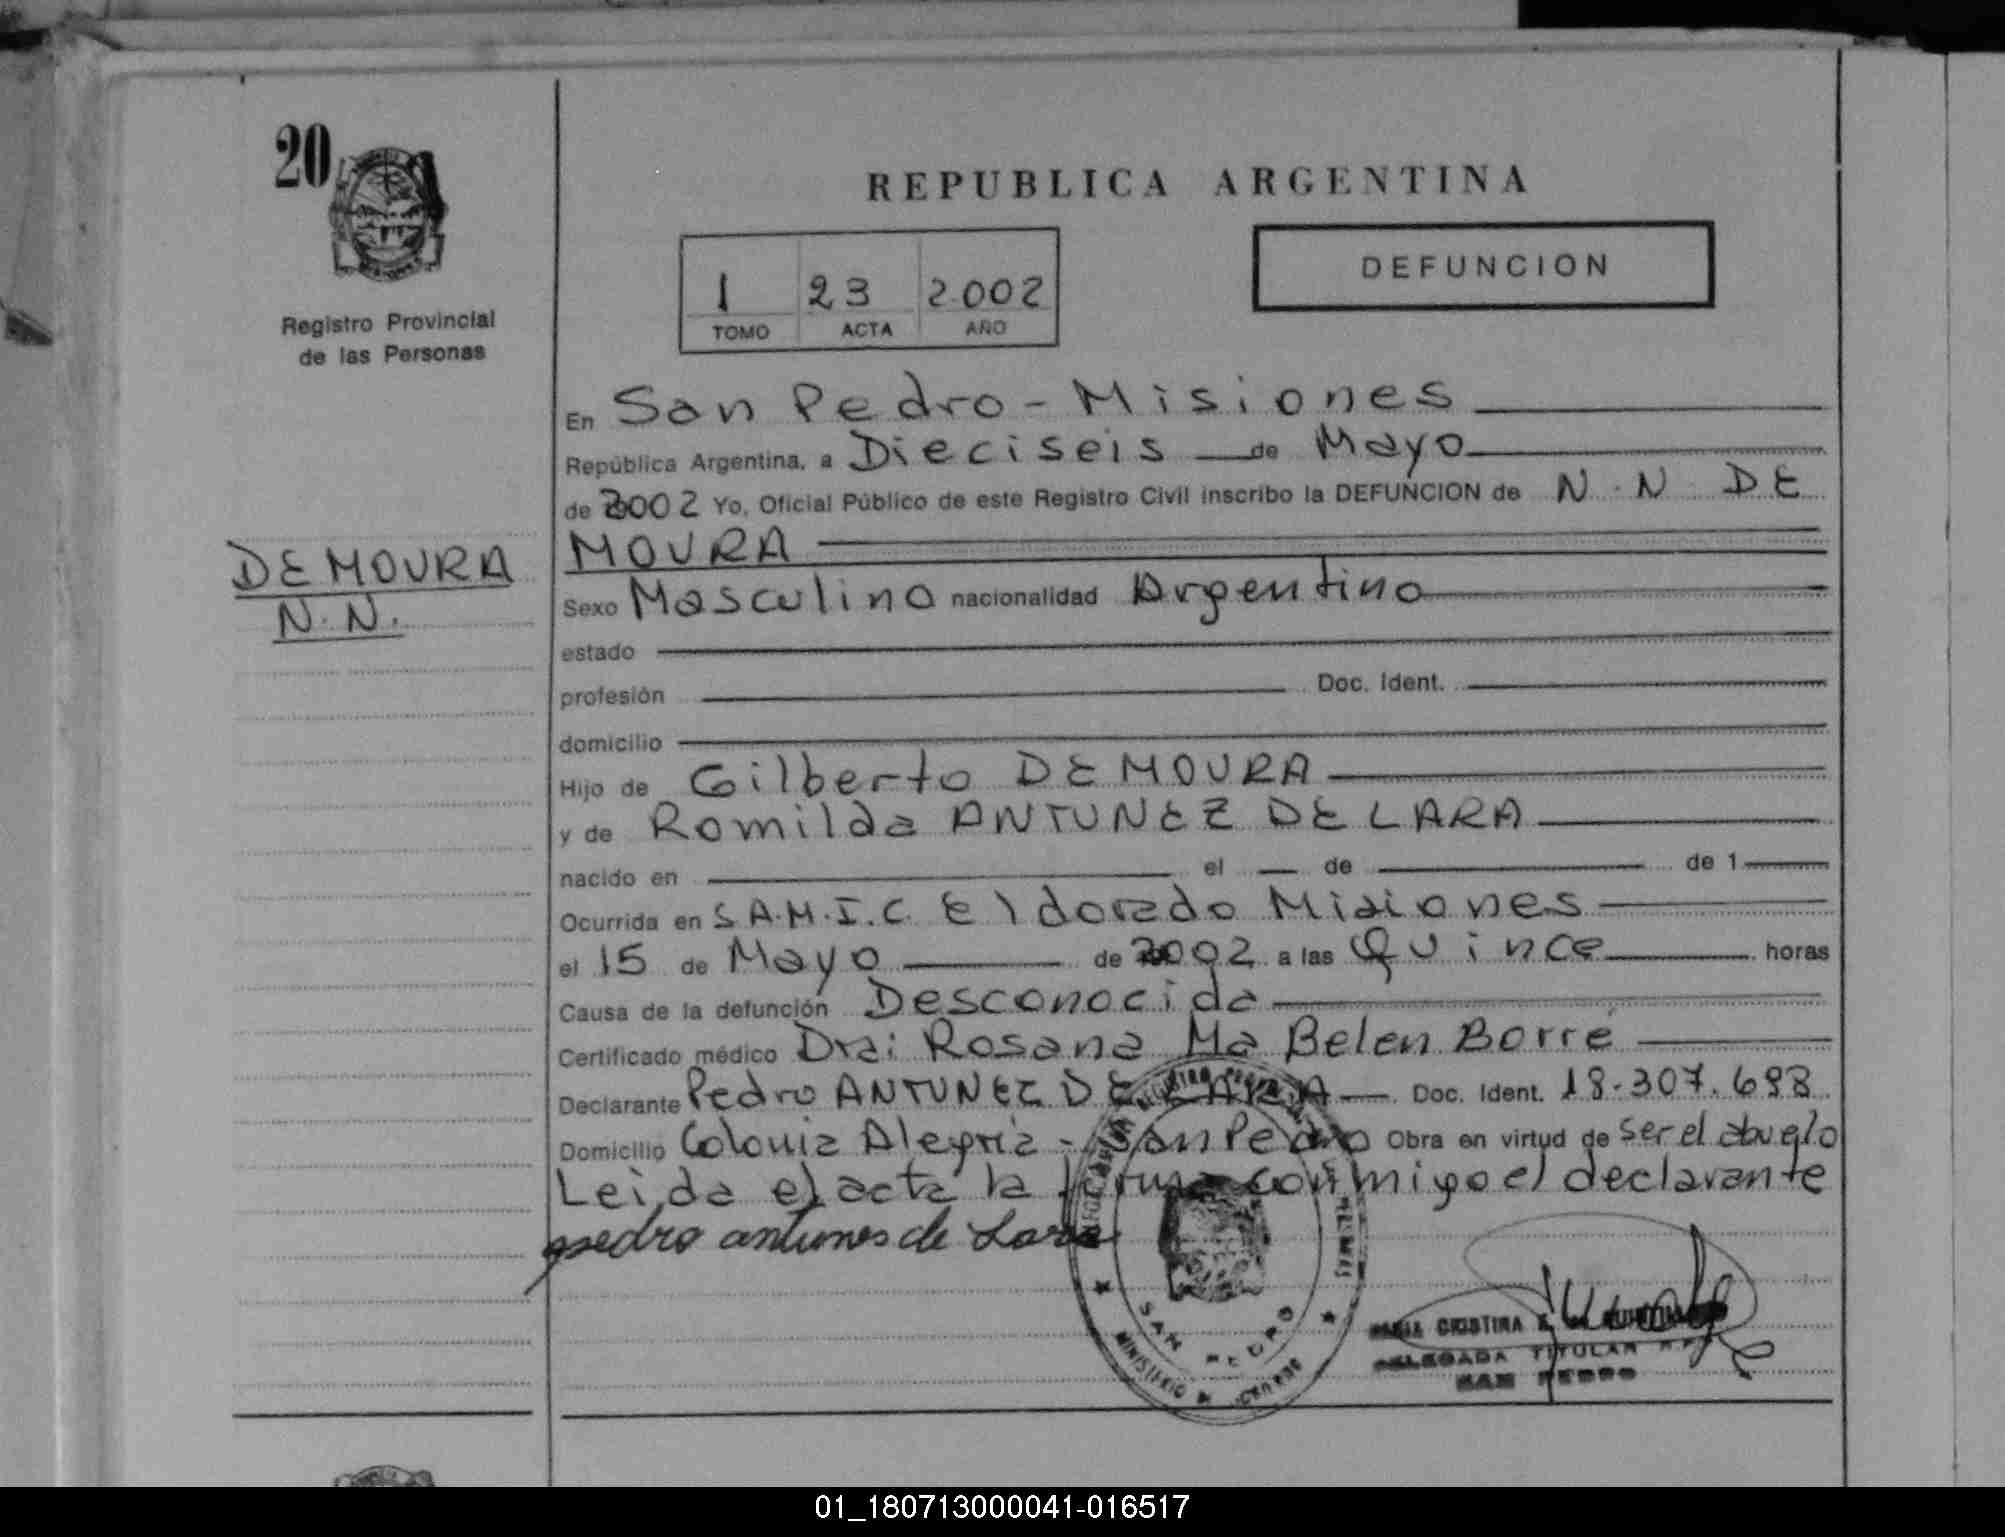 20
Registro Provincial
de las Personas
DE MOURA
N.N.
REPUBLICA ARGENTINA
1 23 2002
TOMO ACTA AÑO
DEFUNCION
En San Pedro - Misiones
República Argentina, a Dieciseis de Mayo
de 2002 Yo, Oficial Público de este Registro Civil inscribo la DEFUNCION de N.N DE
MOURA
Sexo Masculino nacionalidad Argentino
estado
profesión Doc. Ident.
domicilio
Hijo de Gilberto DE MOURA
y de Romilda ANTUNEZ DE LARA
nacido en el de de 1
Ocurrida en S.A.M.I.C. Eldorado Misiones
el 15 de Mayo de 2002 a las Quince horas
Causa de la defunción Desconocida
Certificado médico Dra: Rosana Ma Belen Borré
Declarante Pedro ANTUNEZ DE LARA Doc. Ident. 18.307.698
Domicilio Colonia Alegria - San Pedro Obra en virtud de ser el abuelo
Leida el acta la firma conmigo el declarante
pedro antunes de Lara
SAN PEDRO
MINISTERIO DE GOBIERNO
MARIA CRISTINA
DELEGADA TITULAR
SAN PEDRO
01_180713000041-016517